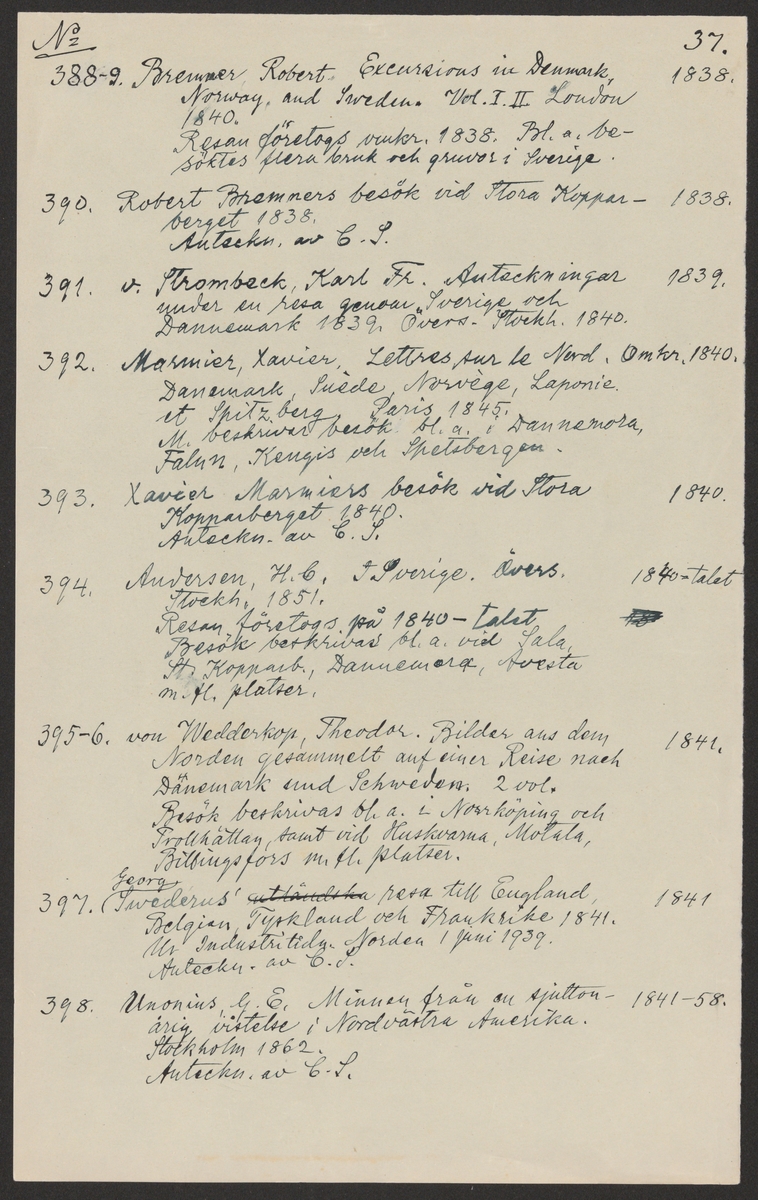 No 37.
388-9. Bremner, Robert. Excursions in Denmark, 1838.
Norway, and Sweden. Vol. I. II London
1840.
Resan företogs omkr. 1838. Bl. a. be-
söktes flera bruk och gruvor i Sverige.
390. Robert Bremners besök vid Stora Koppar- 1838.
berget 1838.
Anteckn. av C. S.
391. v. Strombeck, Karl Fr. Anteckningar 1839.
under en resa genom Sverige och
Dannemark 1839. Övers. Stockh. 1840.
392. Marmier, Xavier, Lettres sur le Nord. Omkr. 1840.
Danemark, Suède, Norvège, Laponie
et Spitzberg. Paris 1845.
M. beskriver besök bl. a. i Dannemora,
Falun, Kengis och Spetsbergen.
393. Xavier Marmiers besök vid Stora 1840.
Kopparberget 1840.
Anteckn. av C. S.
394. Andersen, H. C. I Sverige. Övers. 1840-talet
Stockh. 1851.
Resan företogs på 1840-talet
Besök beskrivas bl. a. vid Sala,
St. Kopparb., Dannemora, Avesta
m. fl. platser.
395-6. von Wedderkop, Theodor. Bilder aus dem 1841.
Norden gesammelt auf einer Reise nach
Dänemark und Schweden. 2 vol.
Besök beskrivas bl. a. i Norrköping och
Trollhättan, samt vid Huskvarna, Motala,
Billingsfors m. fl. platser.
Georg
397. (Swederus' utländska resa till England, 1841
Belgien, Tyskland och Frankrike 1841.
Ur Industritidn. Norden 1 juni 1939.
Anteckn. av C. S.
398. Unonius, G. E. Minnen från en sjutton- 1841-58.
årig vistelse i Nordvästra Amerika.
Stockholm 1862.
Anteckn. av C. S.